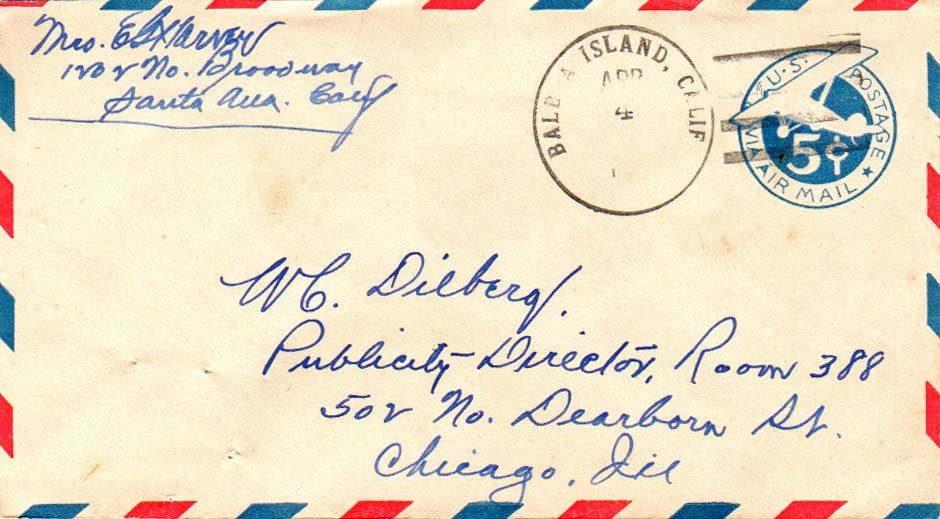 Mrs. E S Harvey
1202 No. Broadway
Santa Ana. Calif
BALB A ISLAND, CALIF
APR
4
U.S. POSTAGE
5¢
VIA AIR MAIL
W C. Dilberg.
Publicity Director, Room 388
502 No. Dearborn St.
Chicago, Ill